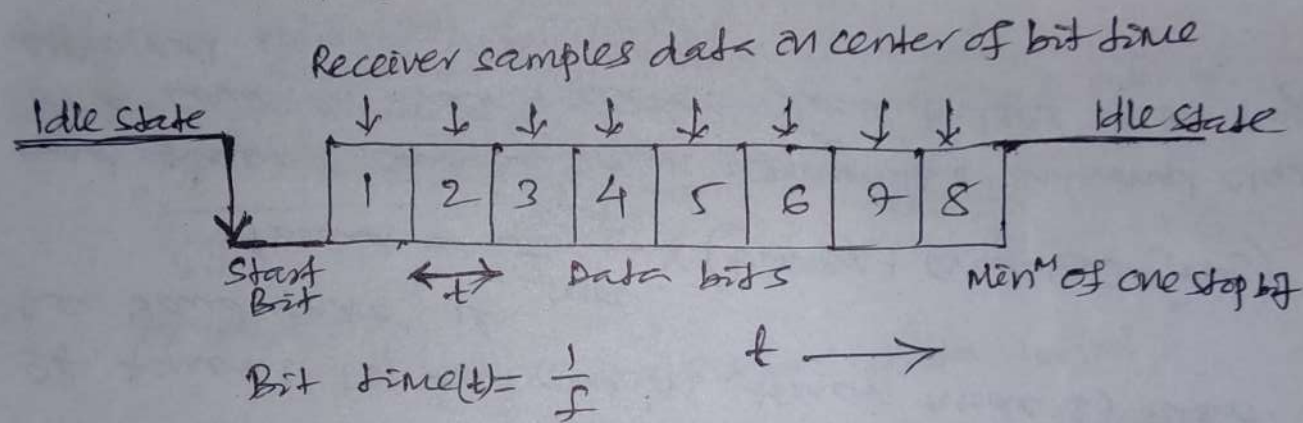 Receiver samples data on center of bit time
Idle state
Idle state
1 2 3 4 5 6 7 8
Start
Bit
t
Data bits
Minᴹ of one stop bit
Bit time(t) = 1/f
t